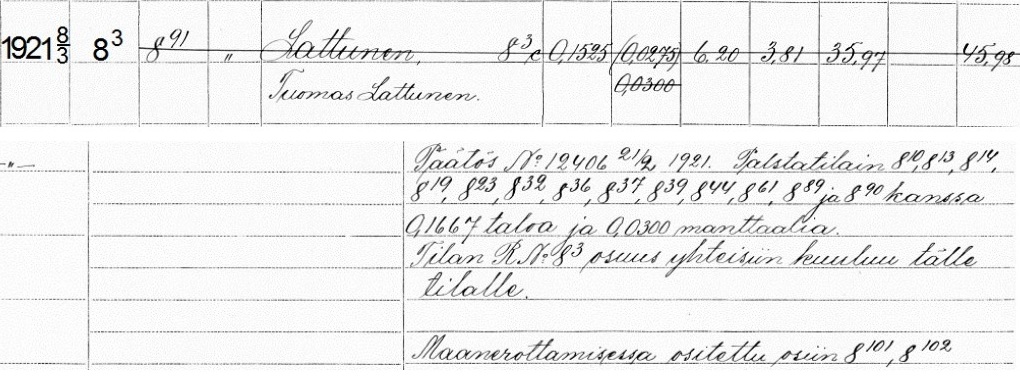 1921 8/3 8³ 8⁹¹ „ Lattunen, 8³c 0,1525 (0,0275) 6,20 3,81 35,97 45,98
Tuomas Lattunen. 0,0300
—„— Päätös No 12406 21/2 1921. Palstatilain 8¹⁰, 8¹³, 8¹⁴,
8¹⁹, 8²³, 8³², 8³⁶, 8³⁷, 8³⁹, 8⁴⁴, 8⁶¹, 8⁸⁹ ja 8⁹⁰ kanssa
0,1667 taloa ja 0,0300 manttaalia.
Tilan R No 8³ osuus yhteisiin kuuluu tälle
tilalle.
Maanerottamisessa ositettu osiin 8¹⁰¹, 8¹⁰²